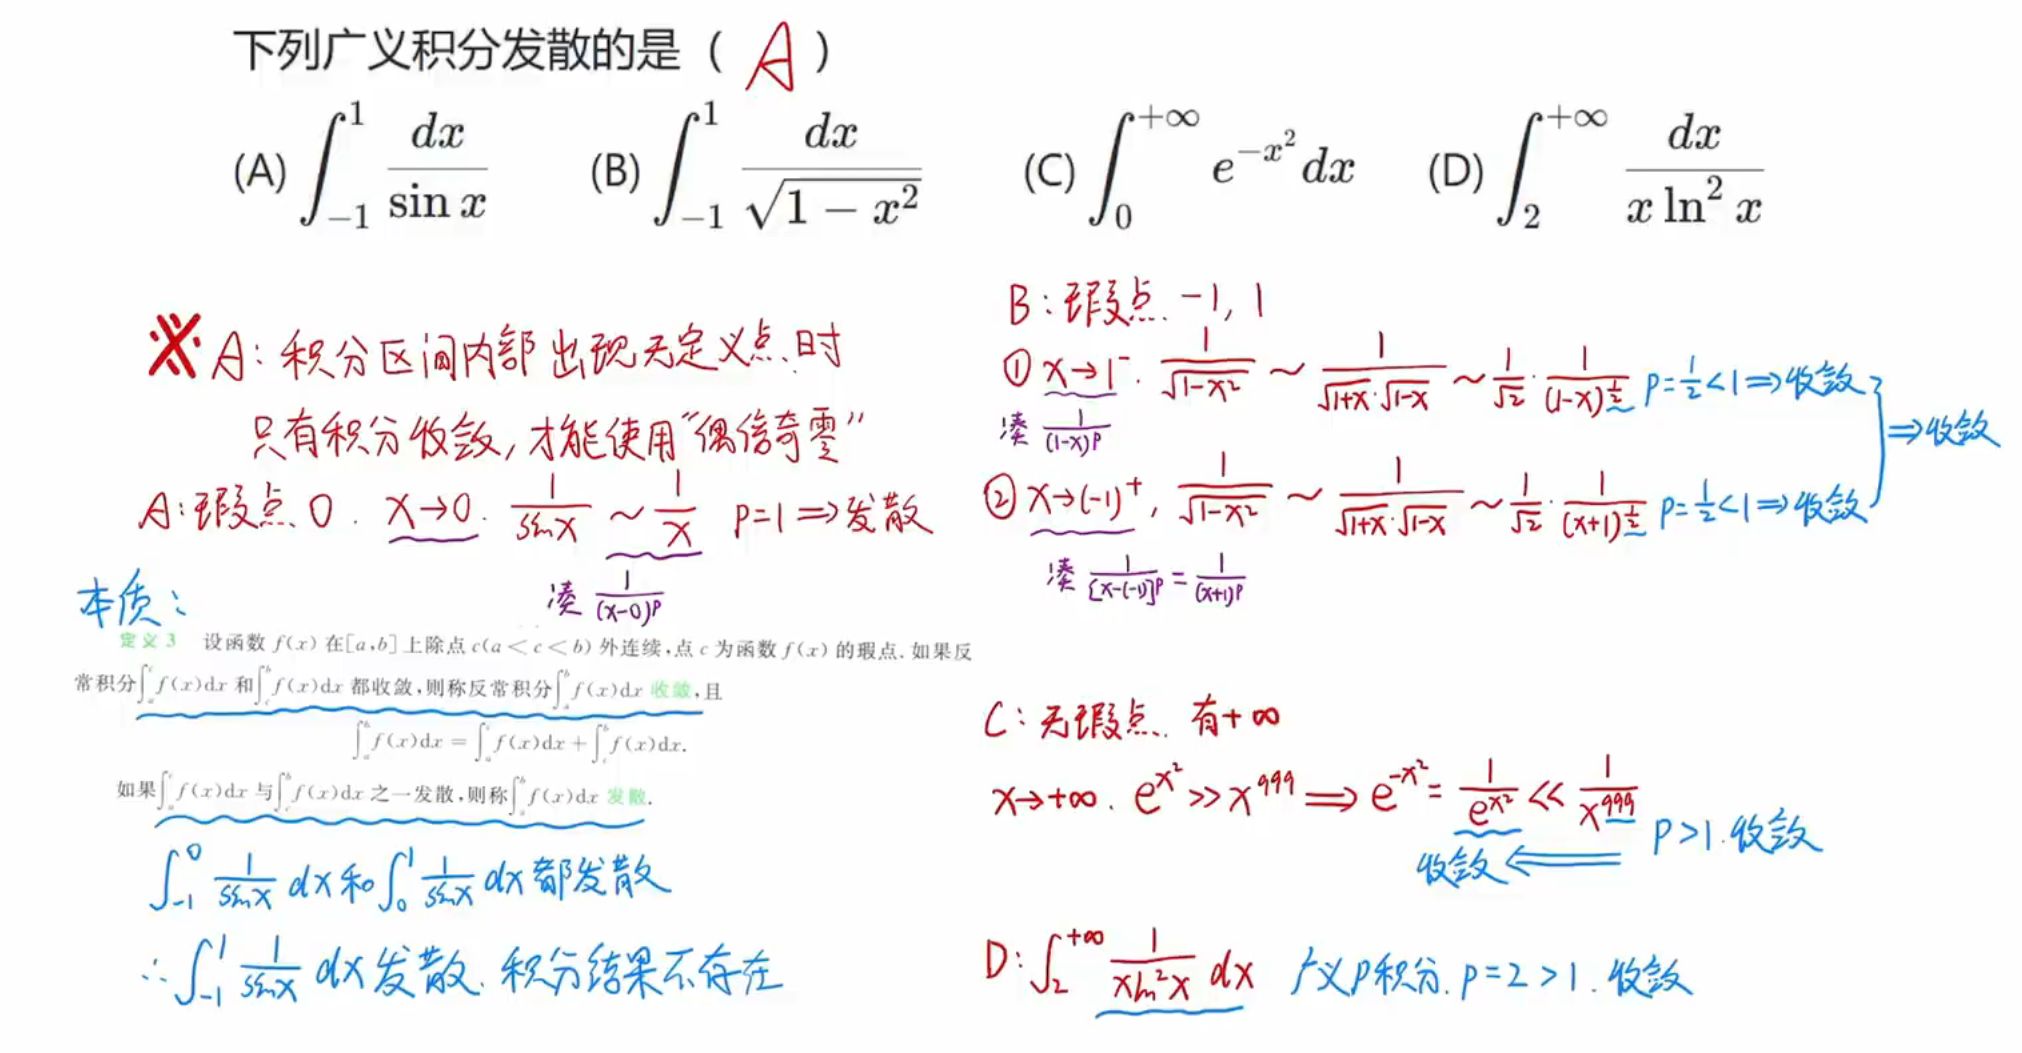 下列广义积分发散的是（ A ）
(A) ∫_{-1}^{1} dx/sin x (B) ∫_{-1}^{1} dx/√(1-x²) (C) ∫_{0}^{+∞} e^{-x²} dx (D) ∫_{2}^{+∞} dx/(x ln² x)
※ A: 积分区间内部出现无定义点时
只有积分收敛,才能使用“偶倍奇零”
A: 瑕点 0. x→0. 1/sinx ~ 1/x p=1⇒发散
凑 1/(x-0)^p
本质:
定义 3 设函数 f(x) 在[a,b]上除点 c(a<c<b) 外连续,点 c 为函数 f(x) 的瑕点. 如果反
常积分∫_a^c f(x)dx 和∫_c^b f(x)dx 都收敛,则称反常积分∫_a^b f(x)dx 收敛,且
∫_a^b f(x)dx = ∫_a^c f(x)dx + ∫_c^b f(x)dx.
如果∫_a^c f(x)dx 与∫_c^b f(x)dx 之一发散,则称∫_a^b f(x)dx 发散.
∫_{-1}^{0} 1/sinx dx 和 ∫_{0}^{1} 1/sinx dx 都发散
∴ ∫_{-1}^{1} 1/sinx dx 发散. 积分结果不存在
B: 瑕点 -1, 1
① x→1⁻. 1/√(1-x²) ~ 1/(√(1+x)·√(1-x)) ~ 1/√2 · 1/(1-x)^{1/2} p=1/2<1⇒收敛
凑 1/(1-x)^p
⇒收敛
② x→(-1)⁺, 1/√(1-x²) ~ 1/(√(1+x)·√(1-x)) ~ 1/√2 · 1/(x+1)^{1/2} p=1/2<1⇒收敛
凑 1/[x-(-1)]^p = 1/(x+1)^p
C: 无瑕点. 有+∞
x→+∞. e^{x²} >> x^{999} ⇒ e^{-x²} = 1/e^{x²} << 1/x^{999}
p>1.收敛
收敛 ⇐
D: ∫_{2}^{+∞} 1/(xln²x) dx 广义p积分. p=2>1. 收敛